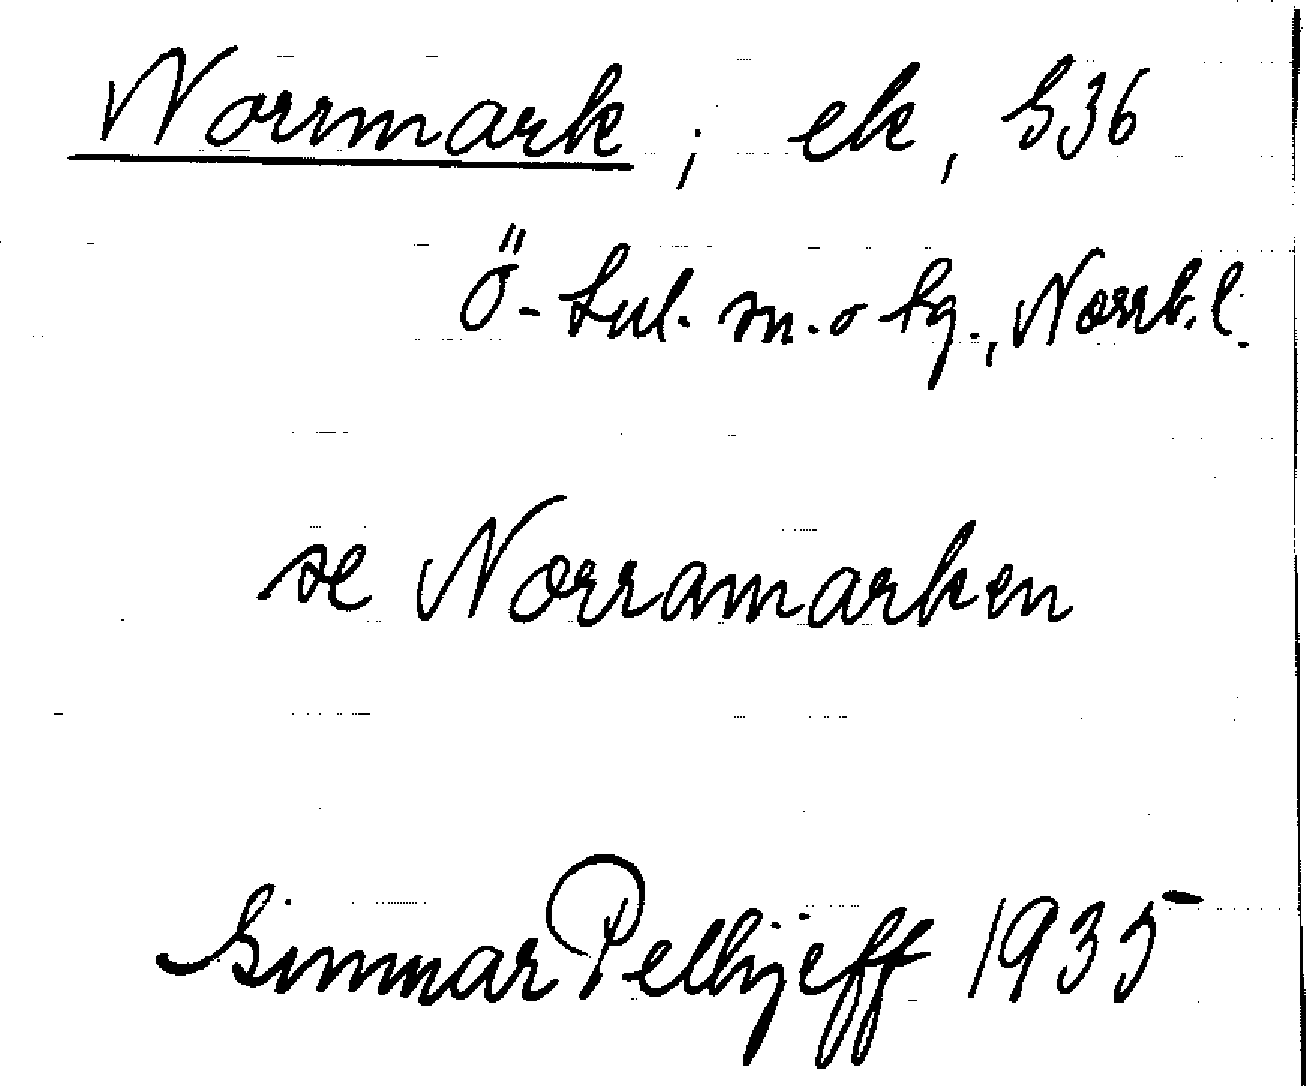 Norrmark; ek, G36
Ö-Lul. sn. o tg., Norrb.l.
se Norramarken
Gunnar Pellijeff 1935